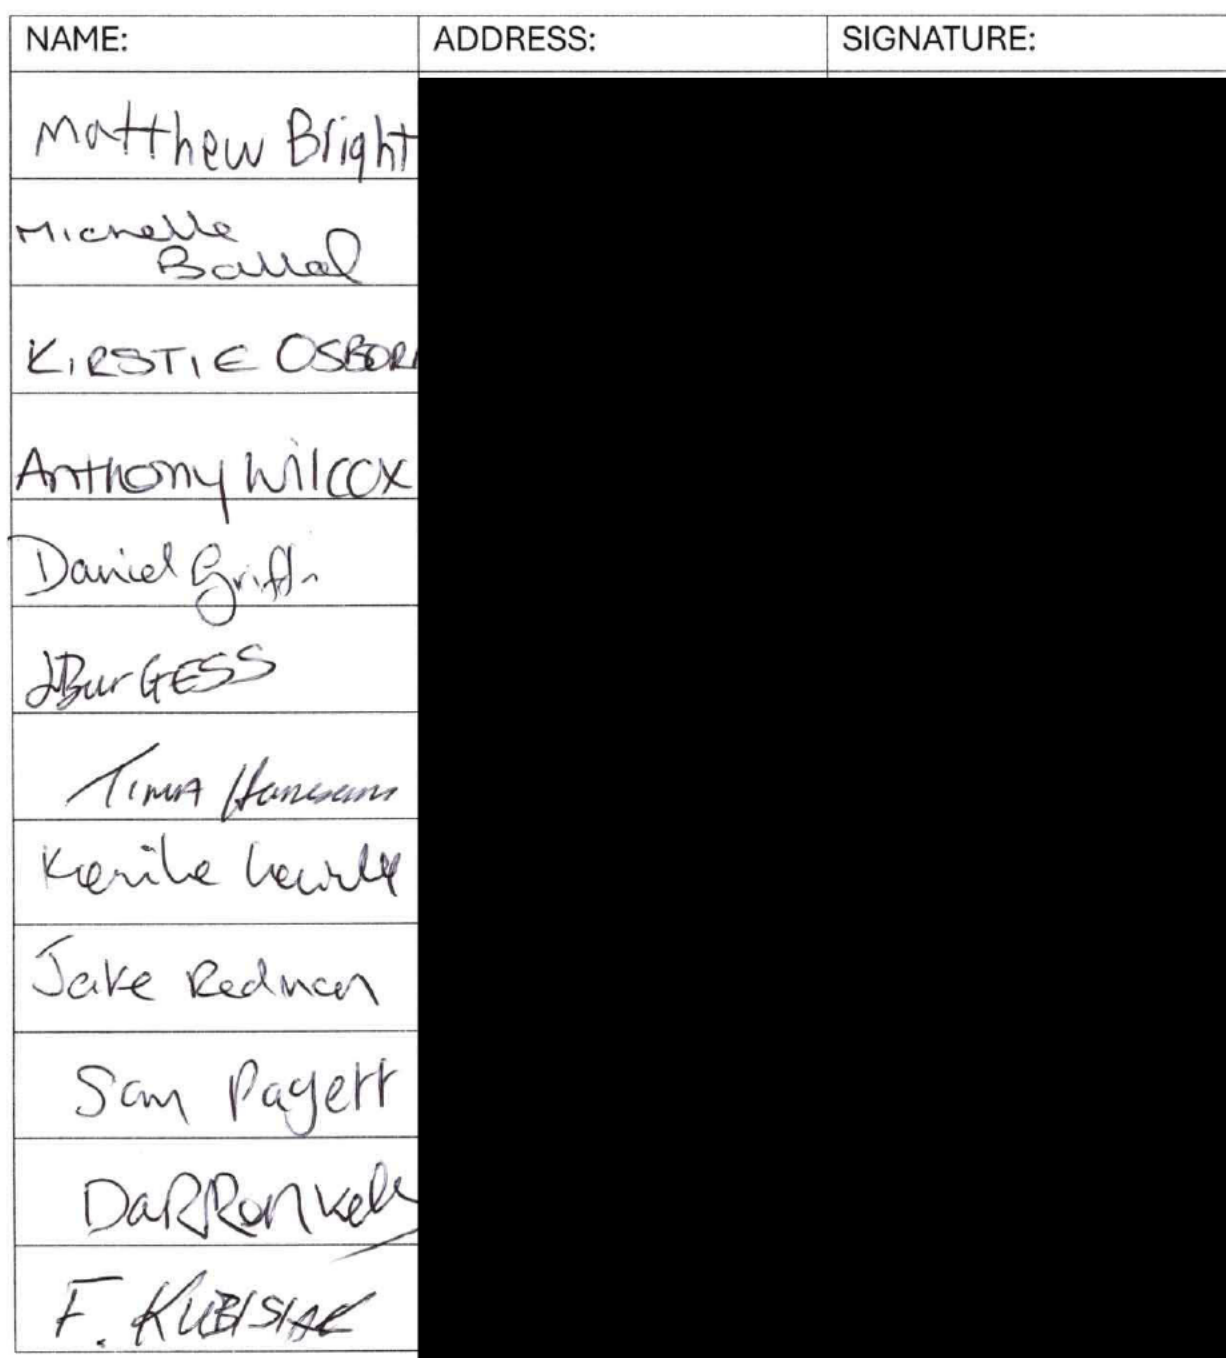 NAME: ADDRESS: SIGNATURE:
Matthew Bright
Michelle
Ballal
KIRSTIE OSBOR
Anthony Wilcox
Daniel Griffin
JBurGESS
TINA
Jake Redman
Sam Pagett
DaRRen Kelly
F. KUBISIAK